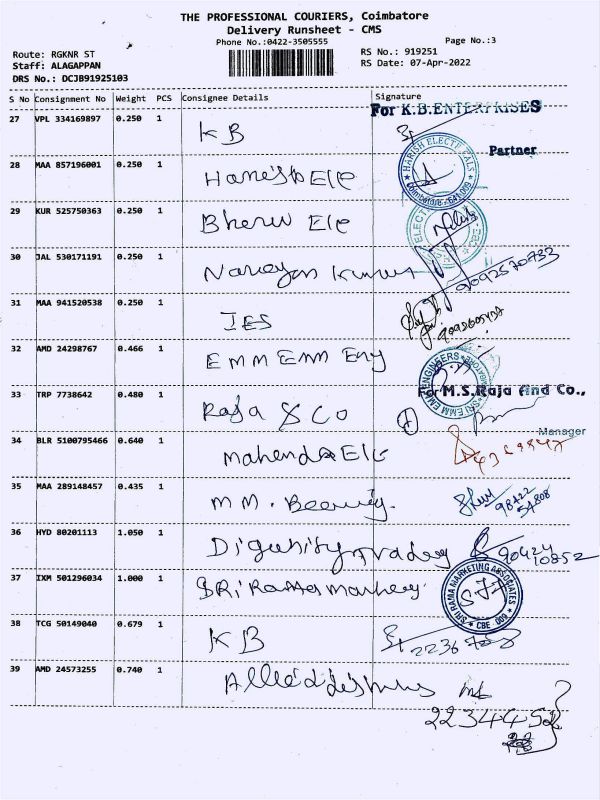 THE PROFESSIONAL COURIERS, Coimbatore
Delivery Runsheet - CMS
Phone No.:0422-3505555 Page No.:3
Route: RGKNR ST RS No.: 919251
Staff: ALAGAPPAN RS Date: 07-Apr-2022
DRS No.: DCJB91925103
S No Consignment No Weight PCS Consignee Details Signature
For K.B.ENTERPRISES
27 VPL 334169897 0.250 1 KB
Partner
28 MAA 857196001 0.250 1 Harish Ele
HARISH ELECTRICALS
Coimbatore - 641 009
29 KUR 525750363 0.250 1 Bheru Ele
30 JAL 530171191 0.250 1 Narayan Kumar
31 MAA 941520538 0.250 1 IES
32 AMD 24298767 0.466 1 EMM EMM Eng
SRI EMM EMM ENGINEERS
33 TRP 7738642 0.480 1 Raja & Co
For M.S.Raja And Co.,
Manager
34 BLR 5100795466 0.640 1 Mahendra Ele
35 MAA 289148457 0.435 1 M M . Bearing.
98422
54808
36 HYD 80201113 1.050 1 Dignity Traders 90424
10852
37 IXM 501296034 1.000 1 SRi Rama Markeng
SRI RAMA MARKETING ASSOCIATES
CBE - 009
38 TCG 50149040 0.679 1 KB
39 AMD 24573255 0.740 1 Allied
22344